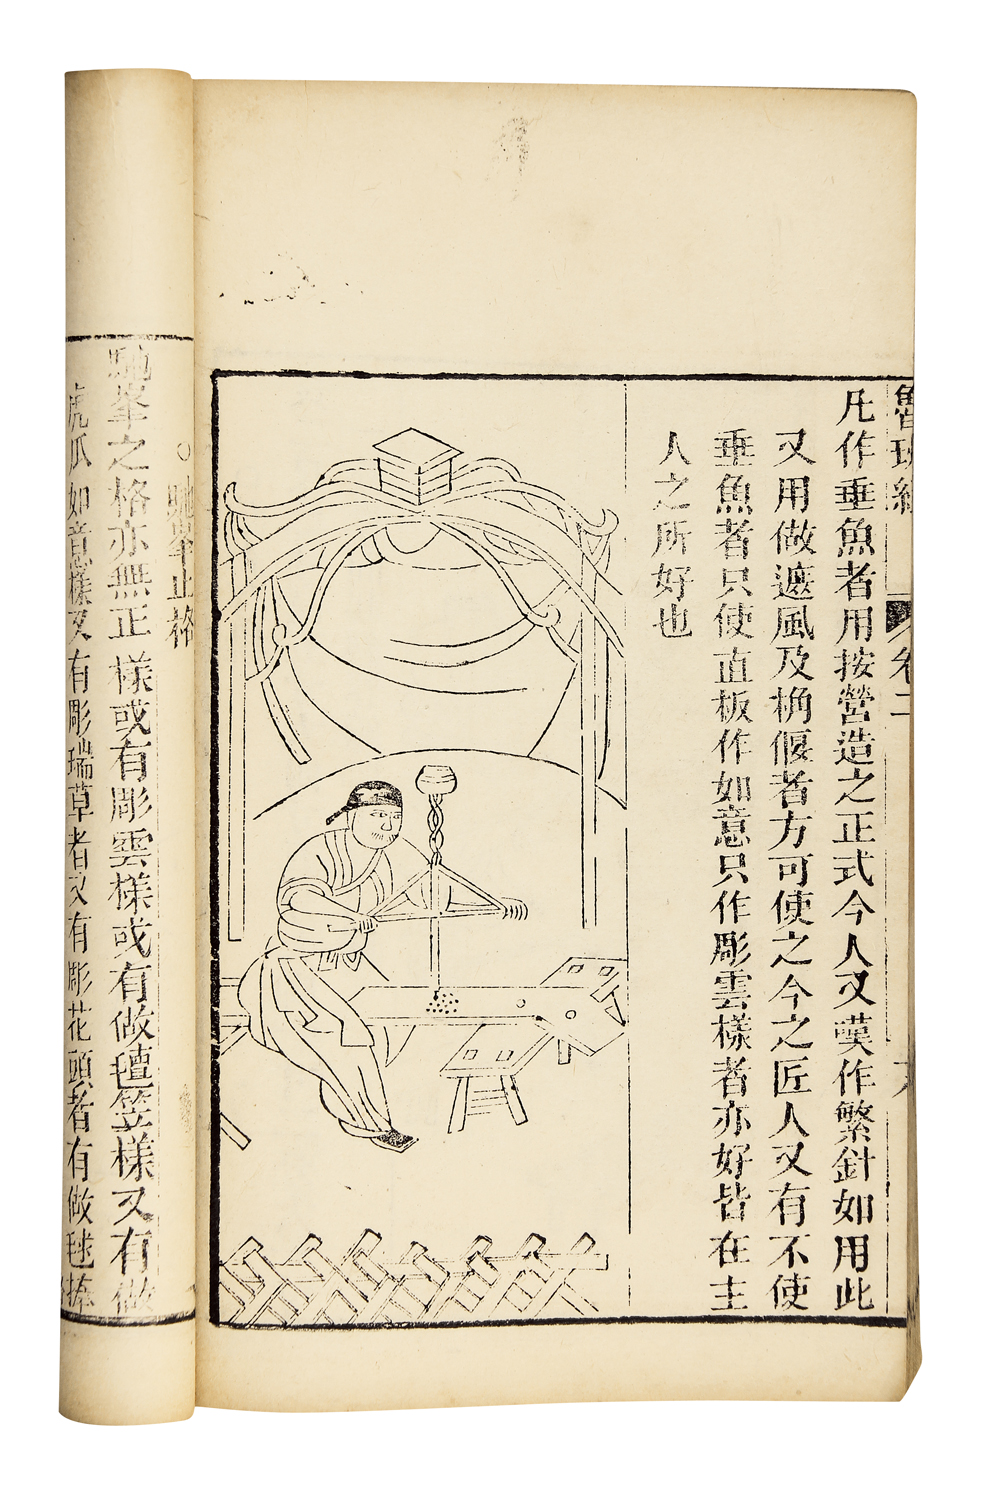 魯班經
卷二
凡作垂魚者用按營造之正式今人又嘆作繁針如用此
又用做遮風及桷偃者方可使之今之匠人又有不使
垂魚者只使直板作如意只作彫雲樣者亦好皆在主
人之所好也
○駞峯止格
駞峯之格亦無正樣或有彫雲樣或有做氊笠樣又有做
虎爪如意樣又有彫瑞草者又有彫花頭者有做毬捧